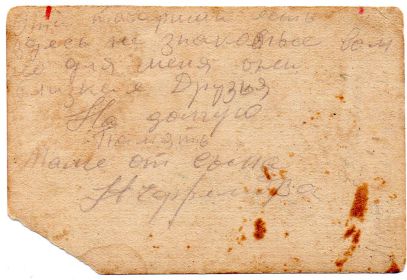 эти товарищи есть
здесь не знакомые вам
но для меня они
близкие Друзья
На долгую
Память
Маме от сына